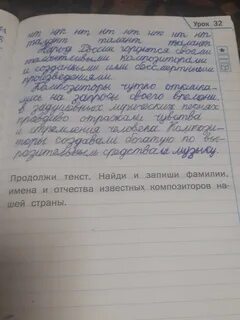 Урок 32
нт нт нт нт нт нт нт нт.
талант талант талант
Народ России гордится своими
талантливыми композиторами
и созданными ими бессмертными
произведениями.
Композиторы чутко отклика-
лись на запросы своего времени.
В задушевных лирических песнях
правдиво отражали чувства
и стремления человека. Компози-
торы создавали богатую по вы-
разительным средствам музыку.
Продолжи текст. Найди и запиши фамилии,
имена и отчества известных композиторов на-
шей страны.